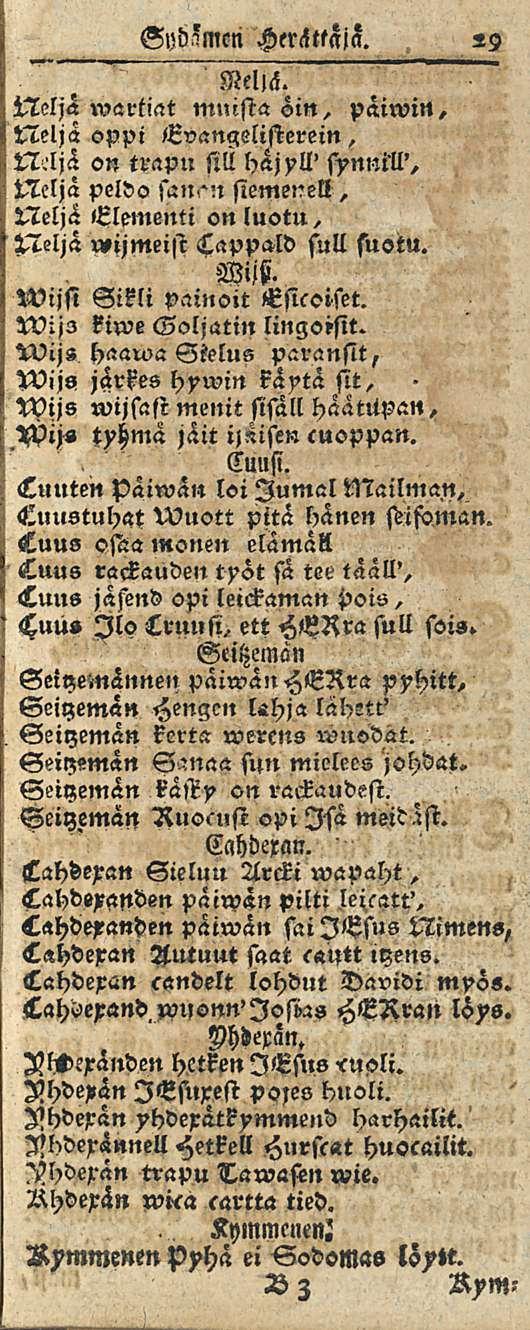 Sydämen Herättäjä. 29
Neljä.
Neljä wartiat muista öin, päiwin,
Neljä oppi Evangelisterein,
Neljä on trapu sill häjyll' synnill',
Neljä peldo sanan siemenell,
Neljä Elementi on luotu,
Neljä wijmeist Cappald sull suotu.
Wijsi.
Wijsi Sikli painoit Esicoiset.
Wijs kiwe Goljatin lingoisit.
Wijs haawa Sielus paransit,
Wijs järkes hywin käytä sit,
Wijs wijsast menit sisäll häätupan,
Wijs tyhmä jäit ijäisen cuoppan.
Cuusi.
Cuuten Päiwän loi Jumal Mailman,
Cuustuhat Wuott pitä hänen seisoman.
Cuus osaa monen elämäll
Cuus rackauden työt sä tee tääll',
Cuus jäsend opi leickaman pois,
Cuus Ilo Cruusi, ett HERra sull sois.
Seitzemän
Seitzemännen päiwän HERra pyhitt,
Seitzemän Hengen lahja lähett'
Seitzemän kerta werens wuodat.
Seitzemän Sanaa sun mielees johdat.
Seitzemän käsky on rackaudest.
Seitzemän Ruocust opi Isä meidäst.
Cahdexan.
Cahdexan Sieluu Arcki wapaht,
Cahdexanden päiwän pilti leicatt',
Cahdexanden päiwän sai JEsus Nimens,
Cahdexan Autuut saat cautt itzens.
Cahdexan candelt lohdut Davidi myös.
Cahdexand wuonn' Josias HERran löys.
Yhdexän.
Yhdexänden hetken JEsus cuoli.
Yhdexän JEsuxest pojes huoli.
Yhdexän yhdexätkymmend harhailit.
Yhdexännell Hetkell Hurscat huocailit.
Yhdexän trapu Tawasen wie.
Yhdexän wica cartta tied.
Kymmenen.
Kymmenen Pyhä ei Sodomas löytt.
B 3 Kym-